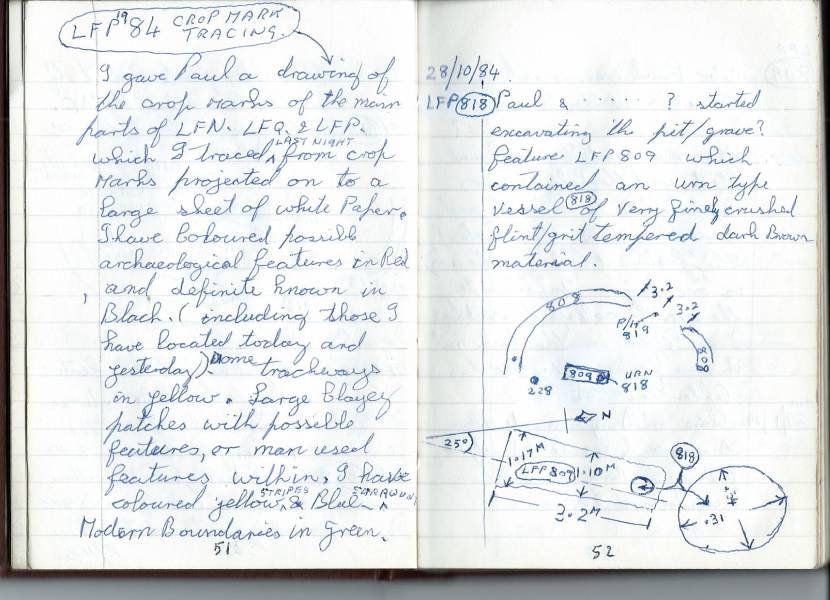 LFP 19 84 CROP MARK
TRACING.
I gave Paul a drawing of
the crop marks of the main
parts of LFN. LFQ. & LFP.
which I traced LAST NIGHT from crop
marks projected on to a
large sheet of white Paper.
I have Coloured possible
archaeological features in Red
and definite known in
Black. (including those I
have located today and
yesterday). Some trackways
in yellow. Large Clayey
patches with possible
features, or man used
features within, I have
coloured yellow STRIPES & Blue
Modern Boundaries in Green.
51
28/10/84.
LFP 818 Paul & ...... ? started
excavating the pit/grave?
feature LFP 809 which
contained an urn type
vessel 818 of very finely crushed
flint/grit tempered dark Brown
material.
808
3.2
3.2
P/H
819
808
809
URN
818
228
N
25°
1.17M
LFP 809
1.10M
818
3.2M
.31
52